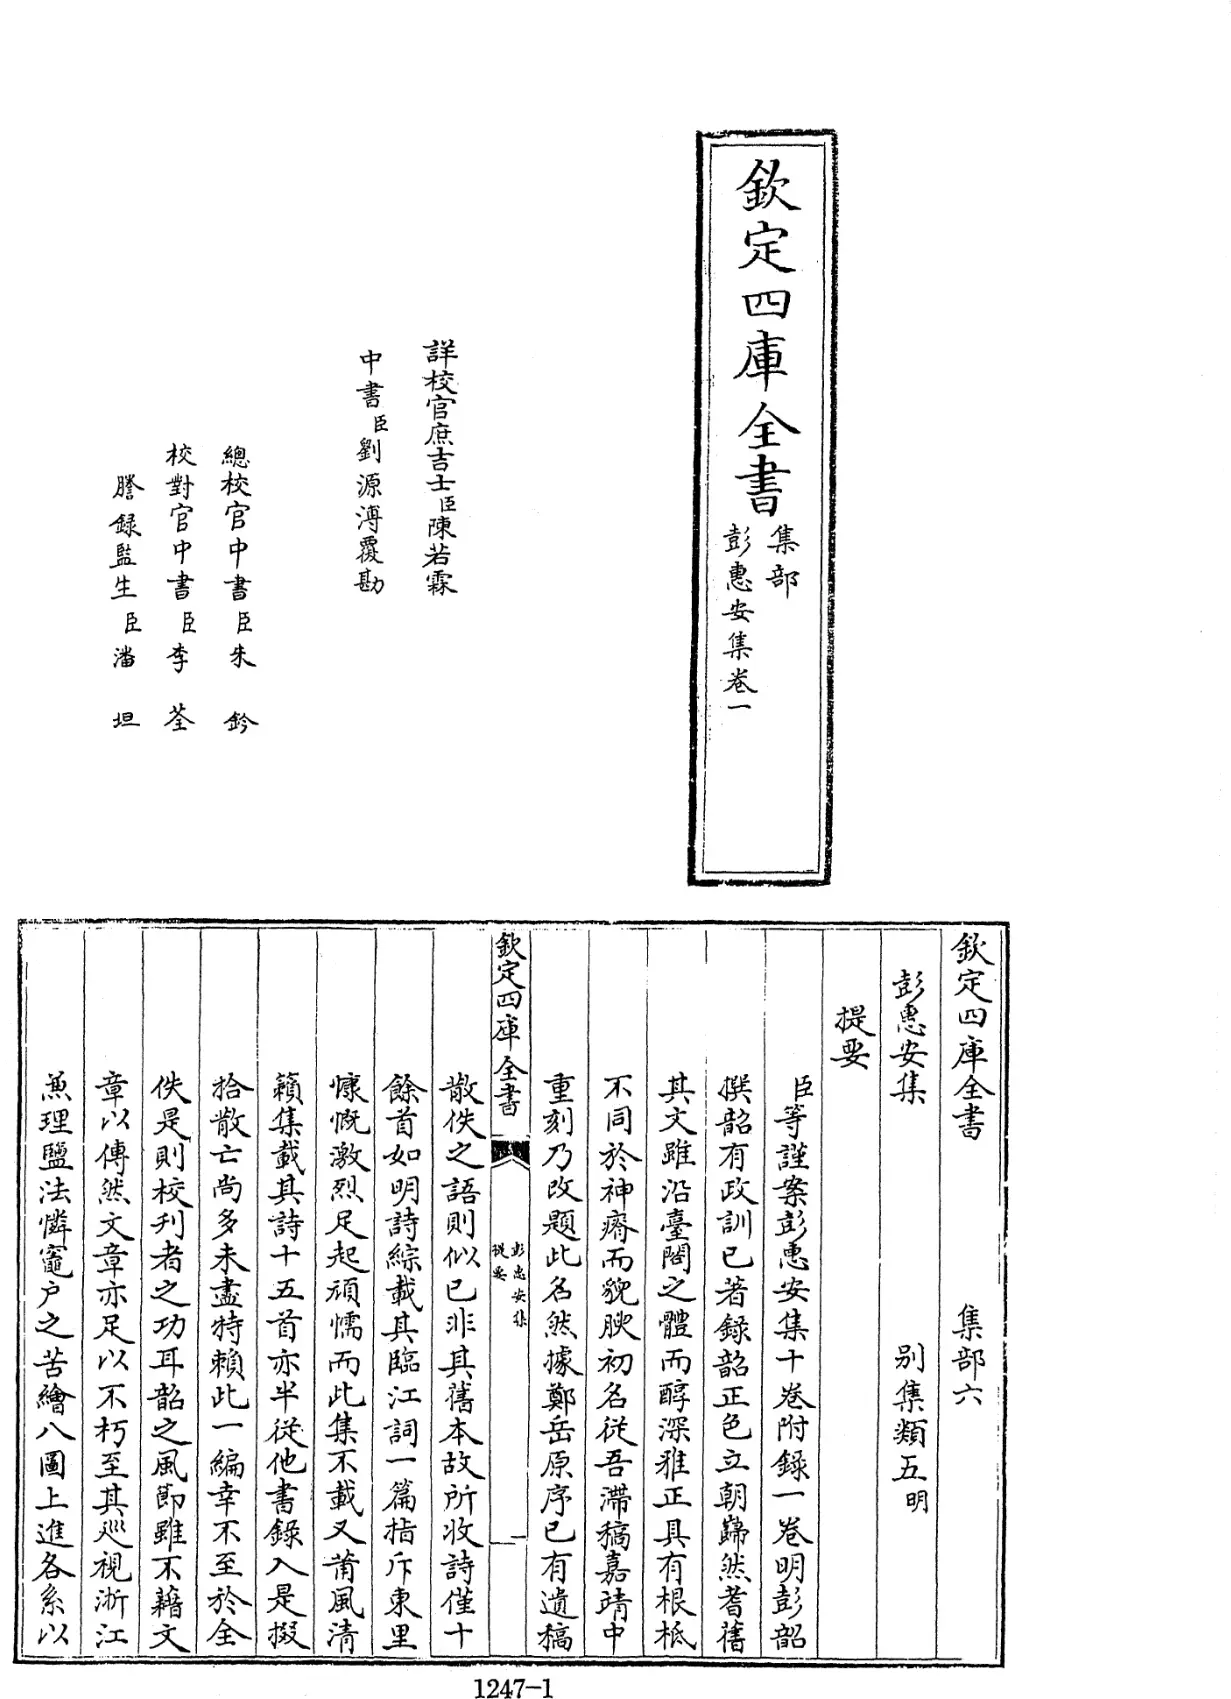 欽定四庫全書
集部
彭惠安集卷一
詳校官庶吉士臣陳若霖
中書臣劉源溥覆勘
總校官中書臣朱鈐
校對官中書臣李荃
謄錄監生臣潘坦
欽定四庫全書 集部六
彭惠安集 别集類五明
提要
臣等謹案彭惠安集十卷附錄一卷明彭韶
撰韶有政訓已著録韶正色立朝巋然耆舊
其文雖沿臺閣之體而醇深雅正具有根柢
不同於神瘠而貌腴初名從吾滯稿嘉靖中
重刻乃改題此名然據鄭岳原序已有遺稿
欽定四庫全書
彭惠安集
提要
一
散佚之語則似已非其舊本故所收詩僅十
餘首如明詩綜載其臨江詞一篇指斥東里
慷慨激烈足起頑懦而此集不載又莆風清
籟集載其詩十五首亦半從他書錄入是掇
拾散亡尚多未盡特賴此一編幸不至於全
佚是則校刋者之功耳韶之風節雖不藉文
章以傳然文章亦足以不朽至其巡視浙江
兼理鹽法憐竈户之苦繪八圖上進各系以
1247-1